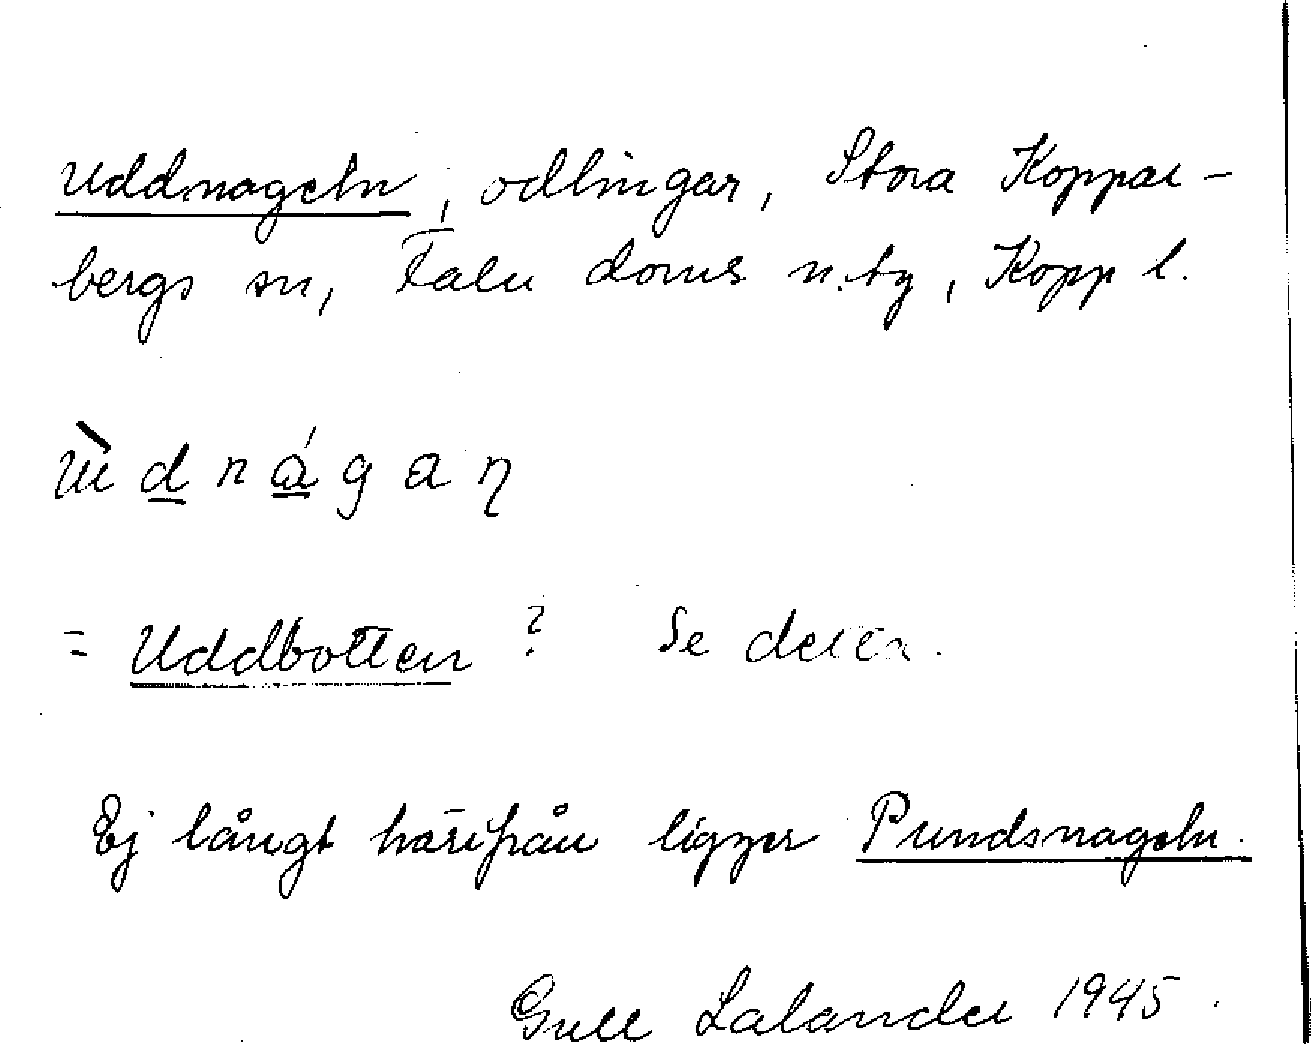 Uddnageln, odlingar, Stora Koppar-
bergs sn, Falu doms n. tg, Kopp l.
ùdnágaη
= Uddbotten? Se denna.
Ej långt härifrån ligger Pundsnageln.
Gull Lalander 1945.